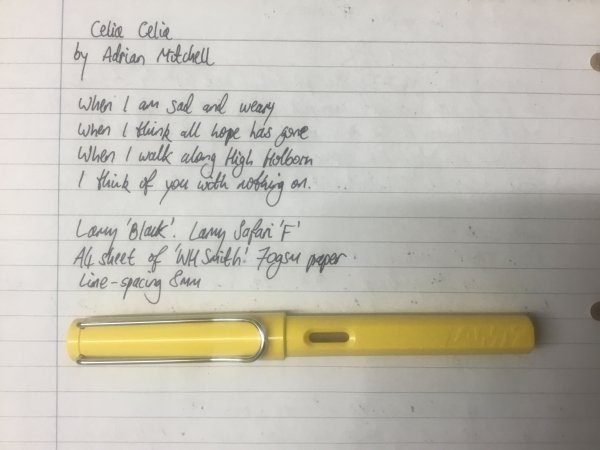 Celia Celia
by Adrian Mitchell
When I am sad and weary
When I think all hope has gone
When I walk along High Holborn
I think of you with nothing on.
Lamy 'Black'. Lamy Safari 'F'
A4 sheet of 'WH Smith' 70gsm paper.
Line-spacing 8mm
LAMY